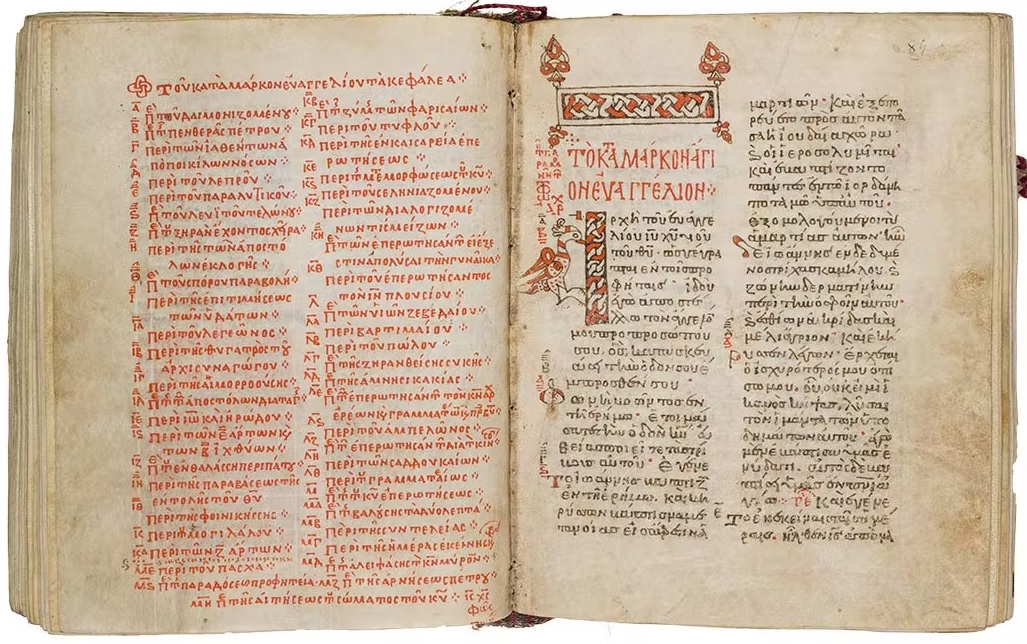 Τοῦ κατὰ μάρκον εὐαγγελίου τὰ κεφάλεα
α π τοῦ δαιμονιζομένου
β π τ πενθερᾶς πέτρου
γ περὶ τῶν ἰαθέντων ἀ
πὸ ποικίλων νόσων
δ περὶ τοῦ λεπροῦ
ε περὶ τοῦ παραλυτικοῦ
ς π τοῦ λευὶ τοῦ τελώνου
ζ π τ ξηρὰν ἔχοντος χεῖρα
η περὶ τῆς τῶν ἀποστό
λων ἐκλογῆς
θ π τοῦ σπόρου παραβολή
ι περὶ τῆς ἐπιτιμήσεως
τῶν ὑδάτων
ια περὶ τοῦ λεγεῶνος
ιβ περὶ τῆς θυγατρὸς τοῦ
ἀρχισυναγώγου
ιγ περὶ τῆς αἱμορροούσης
ιδ π τ ἀποστόλων διαταγ
ιε περὶ ιω καὶ ἡρώδου
ις περὶ τῶν ε ἄρτων κ
τῶν β ἰχθύων
ιζ π τ ἐν θαλάσση περιπάτου
ιη περὶ τῆς παραβάσεως τῆς
ἐντολῆς τοῦ θυ
ιθ περὶ τῆς φοινικίσσης
κ περὶ τοῦ μογιλάλου
κα περὶ τῶν ζ ἄρτων
κβ π τ ζύμης τῶν φαρισαίων
κγ περὶ τοῦ τυφλοῦ
κδ περὶ τῆς ἐν καισαρεία ἐπε
ρωτήσεως
κε περὶ τ μεταμορφώσεως τοῦ κυ
κς περὶ τοῦ σεληνιαζομένου
κζ περὶ τῶν διαλογιζομέ
νων τίς μείζων
κη π τῶν ἐπερωτησάντων εἰ ἔξε
στιν ἀπολῦσαι τὴν γυναῖκα
κθ περὶ τοῦ ἐπερωτήσαντος
τὸν ιν πλουσίου
λ π τῶν υἱῶν ζεβεδαίου
λα περὶ βαρτιμαίου
λβ περὶ τοῦ πώλου
λγ π τῆς ξηρανθείσης συκῆς
λδ π τῆς ἀμνησικακίας
λε π τ ἐπερωτησάντων τὸν κν ἀρχ
ιερέων κ γραμματέων κ πρεσβυ
λς περὶ τοῦ ἀμπελῶνος
λζ π τ ἐπερωτησάντων διὰ τ κῆνσον
λη περὶ τῶν σαδδουκαίων
λθ περὶ τ γραμματέως
μ π τ τοῦ κυ ἐπερωτήσεως
μα π τ βαλούσης τὰ δύο λεπτὰ
μβ περὶ τῆς συντελείας
μγ περὶ τῆς ἡμέρας ἐκείνης
μδ π τ ἀλειψάσης τὸν κν μύρον
με περὶ τοῦ πάσχα
μς π τ παραδόσεως προφητεία μζ π τῆς ἀρνήσεως πέτρου
μη π τῆς αἰτήσεως τ σώματος τοῦ κυ
τὸ κατὰ μάρκον ἅγι
ον εὐαγγέλιον
Ἀρχὴ τοῦ εὐαγγε
λίου ιυ χυ υἱοῦ
τοῦ θυ ὡς γέγρα
πται ἐν τοῖς προ
φήταις ἰδοὺ
ἐγὼ ἀποστέλ
λω τὸν ἄγγελόν
μου πρὸ προσώπου
σου ὃς κατασκευ
άσει τὴν ὁδόν σου ἔ
μπροσθέν σου
Φωνὴ βοῶντος ἐν
τῇ ἐρήμῳ ἑτοιμά
σατε τὴν ὁδὸν κυ εὐ
θείας ποιεῖτε τὰς τρί
βους αὐτοῦ Ἐγένε
το ἰωάννης βαπτίζων
ἐν τῇ ἐρήμῳ καὶ κη
ρύσσων βάπτισμα με
τανοίας εἰς ἄφεσιν ἁ
μαρτιῶν Καὶ ἐξεπο
ρεύετο πρὸς αὐτὸν πᾶ
σα ἡ ἰουδαία χώρα
κ οἱ ἱεροσολυμῖται
καὶ ἐβαπτίζοντο
πάντες ἐν τῶ ἰορδάνη
ποταμῶ ὑπ' αὐτοῦ
ἐξομολογούμενοι τὰς
ἁμαρτίας αὐτῶν ἦν
δὲ ἰωάννης ἐνδεδυμέ
νος τρίχας καμήλου κ
ζώνην δερματίνην
περὶ τὴν ὀσφὺν αὐτοῦ
κ ἐσθίων ἀκρίδας καὶ
μέλι ἄγριον Καὶ ἐκή
ρυσσεν λέγων Ἔρχεται
ὁ ἰσχυρότερός μου ὀπί
σω μου οὗ οὐκ εἰμὶ ἱ
κανὸς κύψας λῦσαι
τὸν ἱμάντα τῶν ὑπο
δημάτων αὐτοῦ ἐγὼ
μὲν ἐβάπτισα ὑμᾶς ἐ
ν ὕδατι αὐτὸς δὲ βα
πτίσει ὑμᾶς ἐν πνι ἁ
γίῳ Καὶ ἐγένε
το ἐν ἐκείναις ταῖς ἡμέ
ραις ἦλθεν ις ἀπὸ να